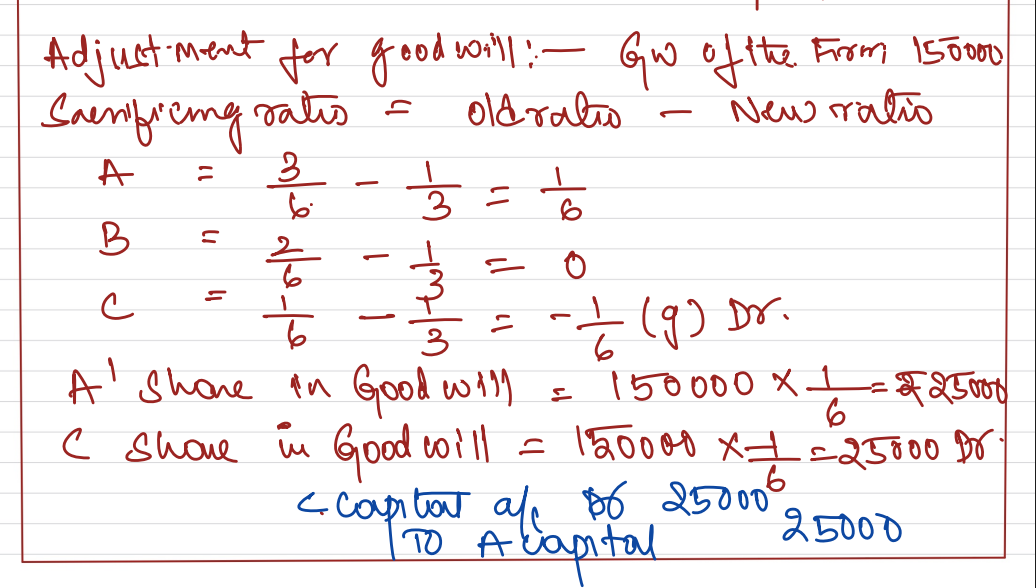 Adjustment for goodwill:- GW of the Firm 150000
Sacrificing ratio = old ratio - New ratio
A = 3/6 - 1/3 = 1/6
B = 2/6 - 1/3 = 0
C = 1/6 - 1/3 = -1/6 (g) Dr.
A' Share in Goodwill = 150000 × 1/6 = ₹25000
C Share in Goodwill = 150000 × 1/6 = 25000 Dr.
C Capital a/c Dr 25000
To A capital 25000